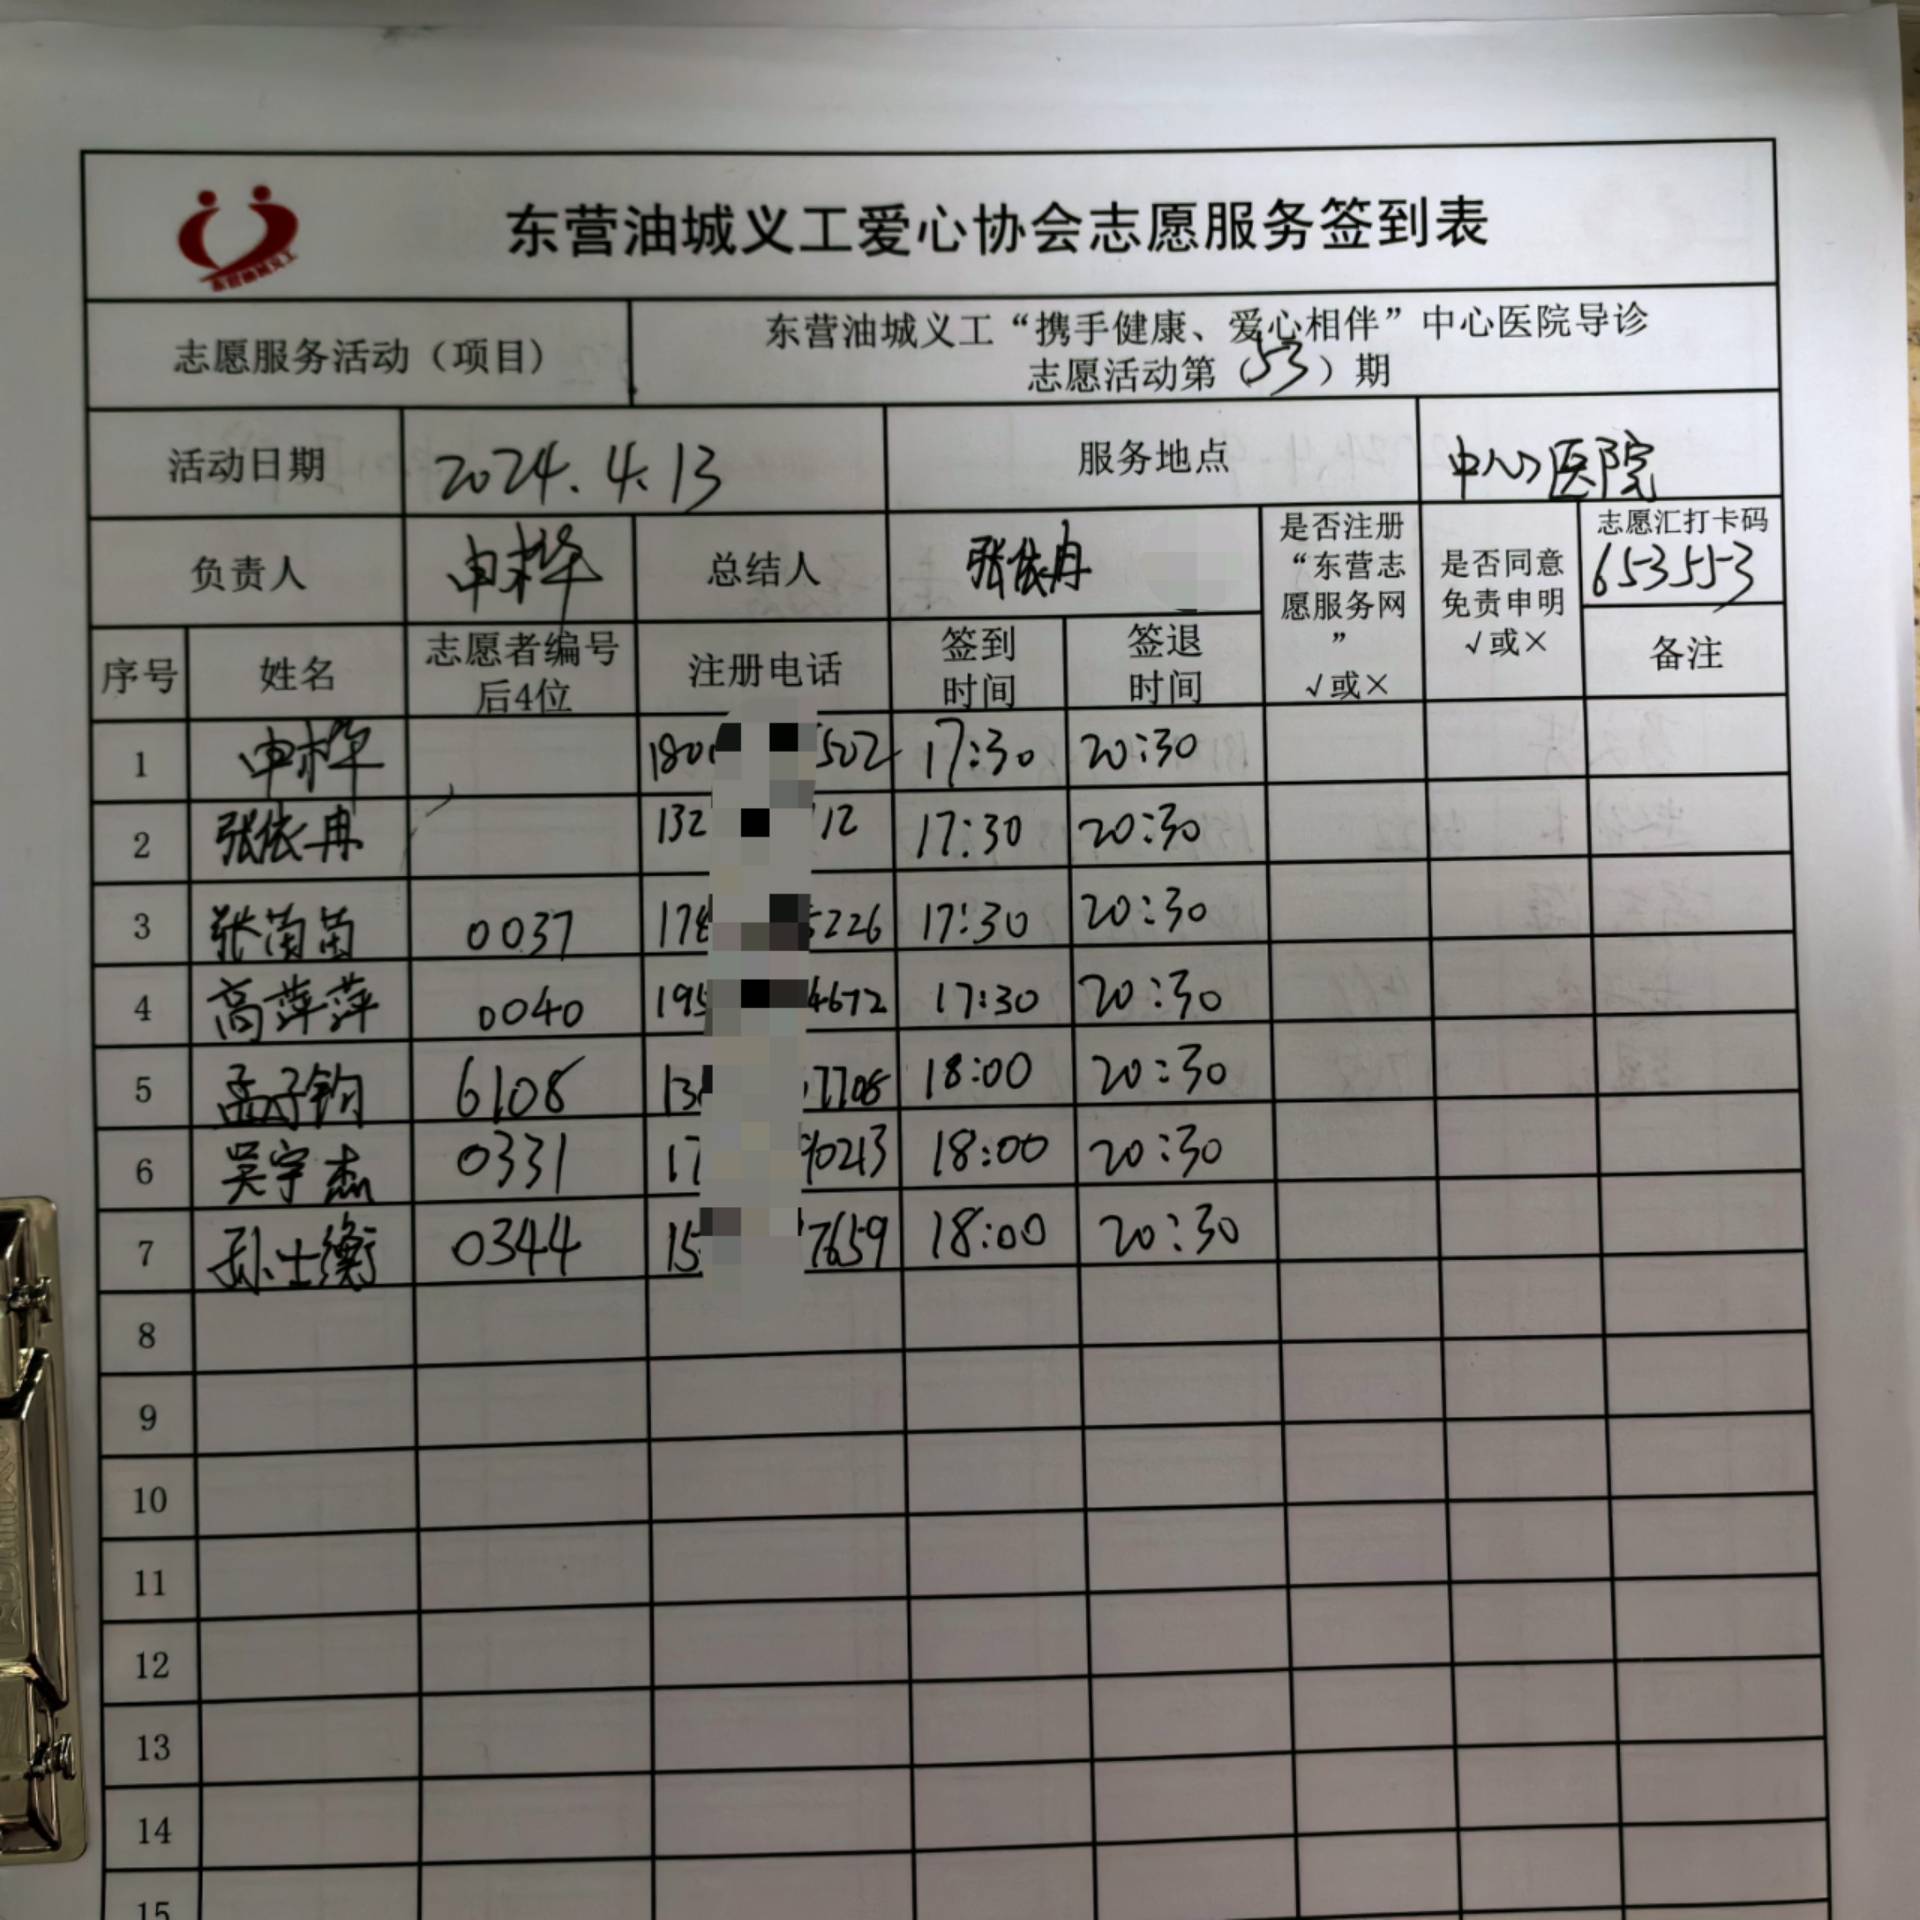 东营油城义工
东营油城义工爱心协会志愿服务签到表
志愿服务活动（项目） 东营油城义工“携手健康、爱心相伴”中心医院导诊
志愿活动第（53）期
活动日期 2024.4.13 服务地点 中心医院
负责人 申桦 总结人 张依冉
是否注册
“东营志
愿服务网
”
√或×
是否同意
免责申明
√或×
志愿汇打卡码
653553
序号 姓名 志愿者编号
后4位
注册电话 签到
时间
签退
时间
备注
1 申桦 180 502 17:30 20:30
2 张依冉 132 12 17:30 20:30
3 张茵茵 0037 178 5226 17:30 20:30
4 高萍萍 0040 195 4672 17:30 20:30
5 孟子钧 6108 13 7708 18:00 20:30
6 吴宇杰 0331 17 90213 18:00 20:30
7 孙士衡 0344 15 7659 18:00 20:30
8
9
10
11
12
13
14
15